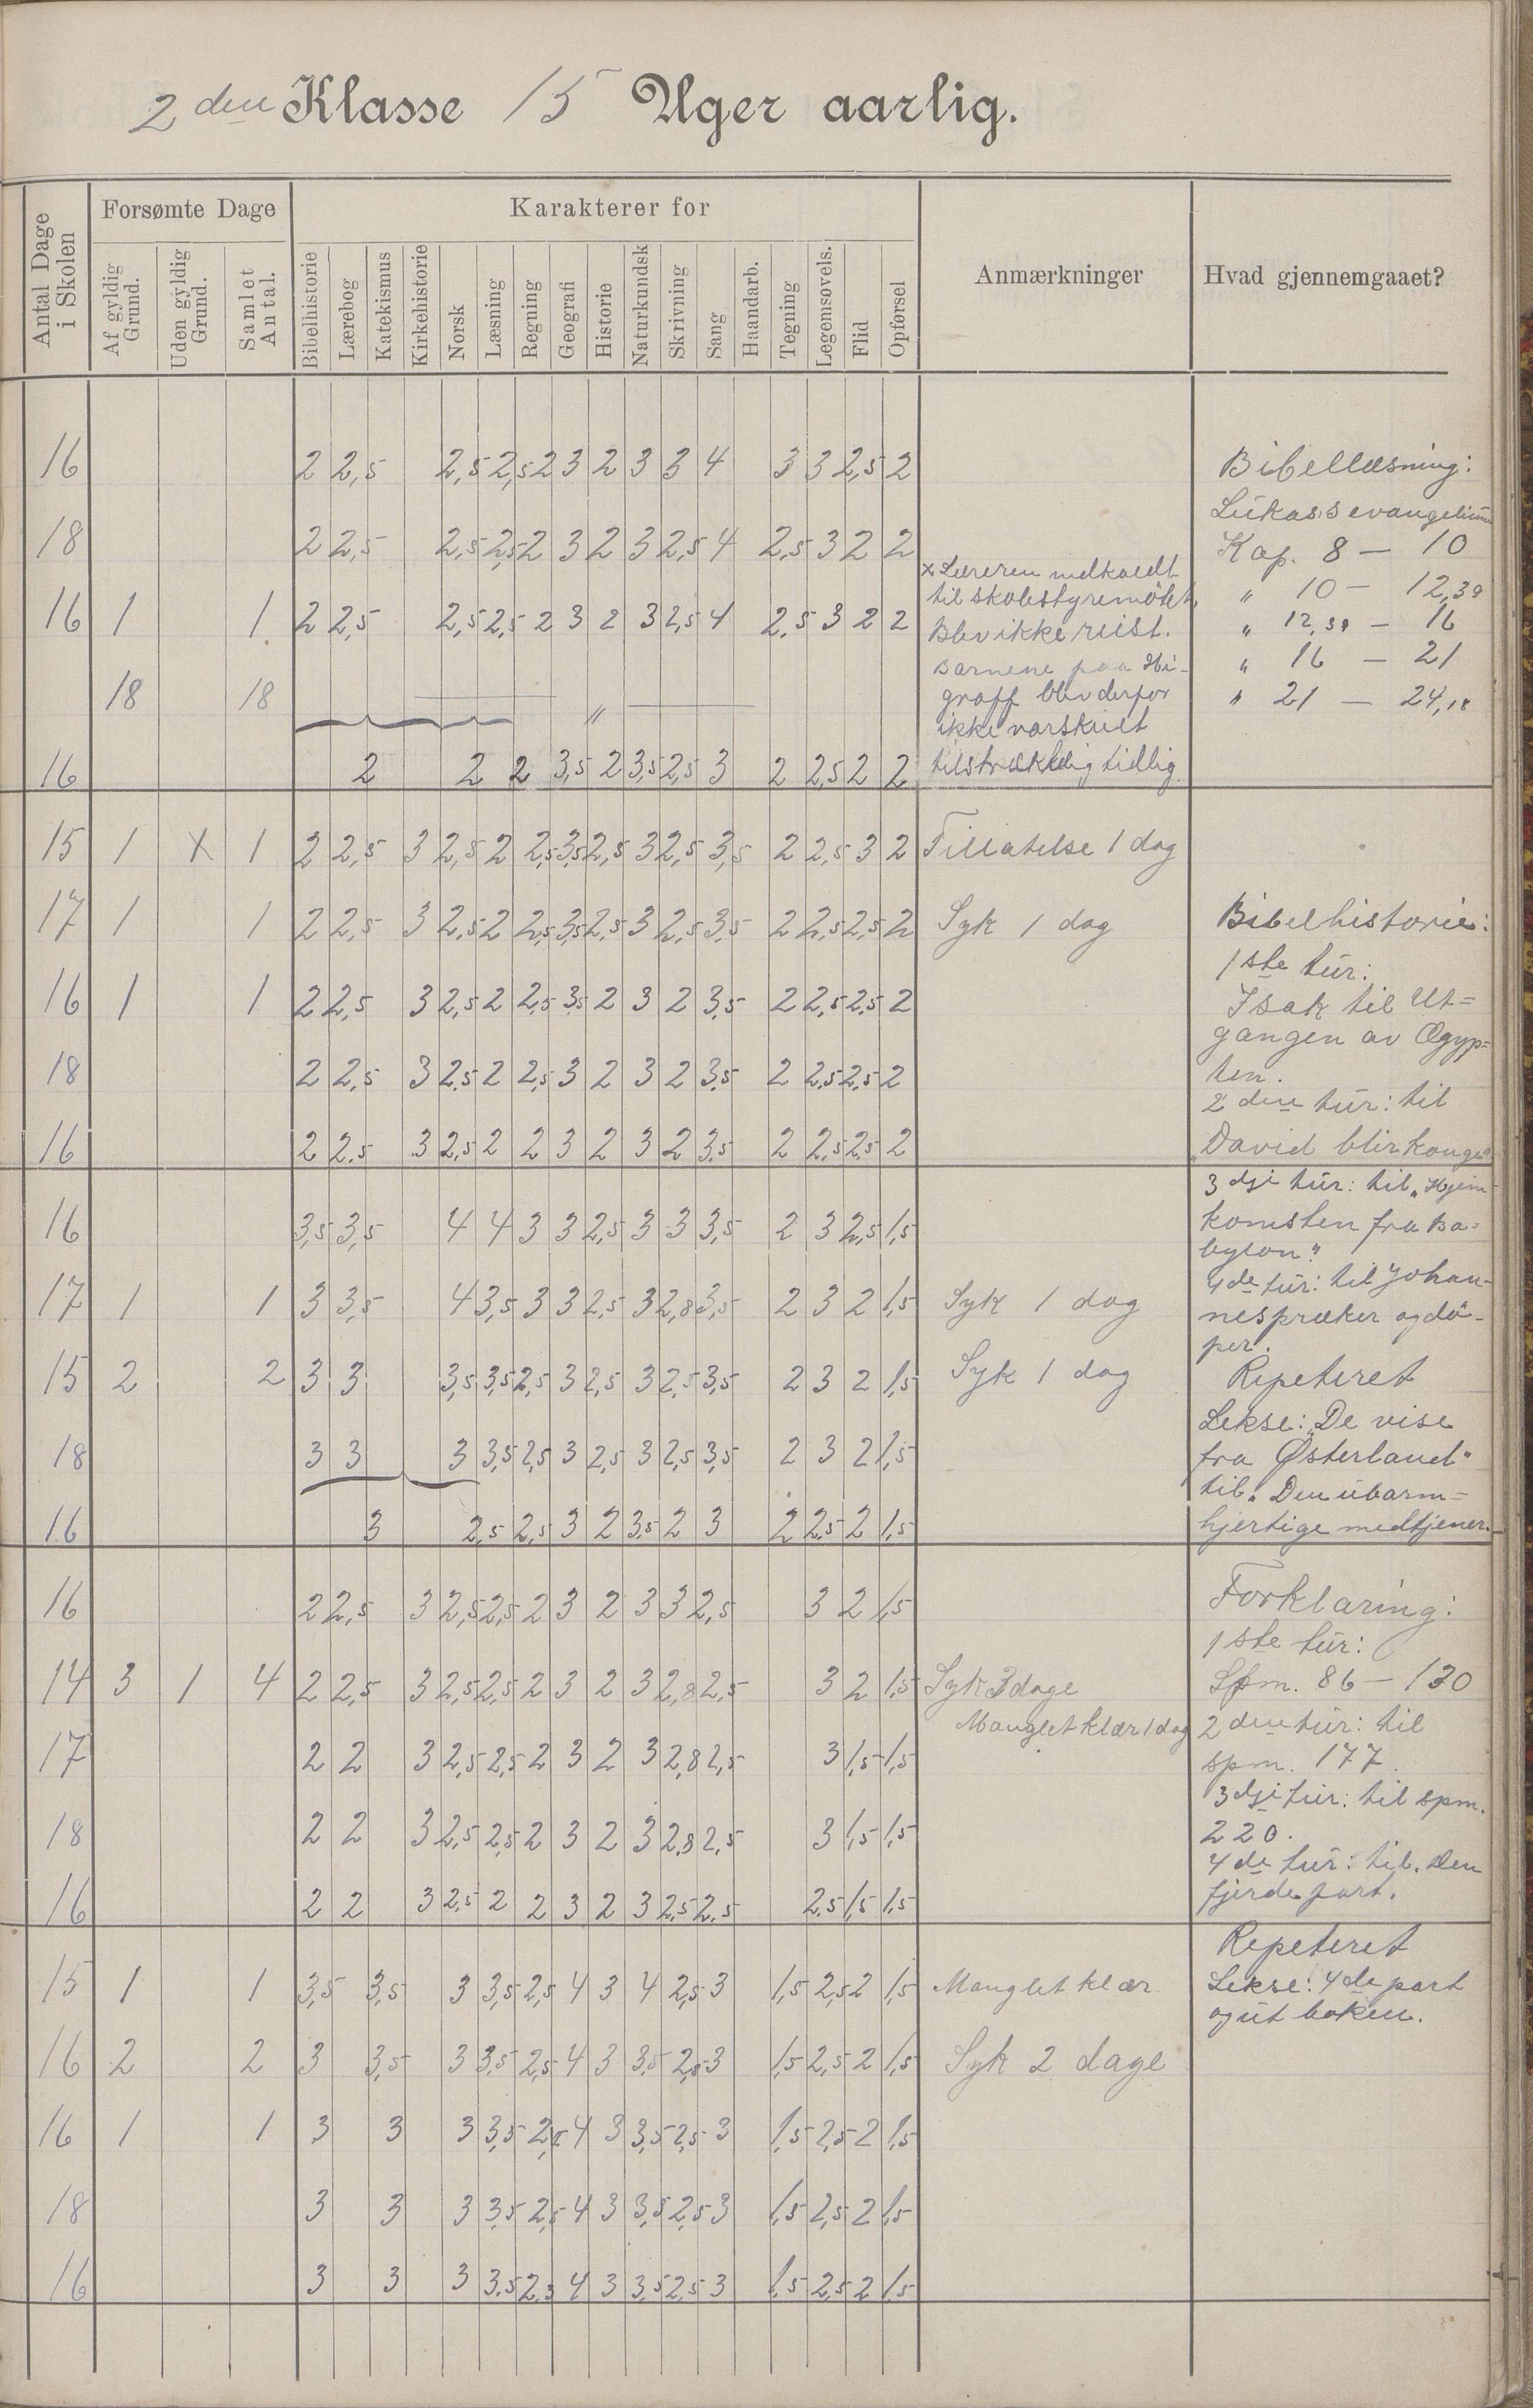 2den Klasse 15 Uger aarlig.
Antal Dage i Skolen
Forsømte Dage
Af gyldig Grund.
Uden gyldig Grund.
Samlet Antal.
Karakterer for
Bibelhistorie
Lærebog
Katekismus
Kirkehistorie
Norsk
Læsning
Regning
Geografi
Historie
Naturkundsk
Skrivning
Sang
Haandarb.
Tegning
Legemsøvels.
Flid
Opførsel
Anmærkninger
Hvad gjennemgaaet?
16 2 2,5 2,5 2,5 2 3 2 3 3 4 3 3 2,5 2
18 2 2,5 2,5 2,5 2 3 2 3 2,5 4 2,5 3 2 2
16 1 1 2 2,5 2,5 2,5 2 3 2 3 2,5 4 2,5 3 2 2
18 18 — " —
16 2 2 2 3,5 2 3,5 2,5 3 2 2,5 2 2
15 1 X 1 2 2,5 3 2,5 2 2,5 3,5 2,5 3 2,5 3,5 2 2,5 3 2 Tillatelse 1 dag
17 1 1 2 2,5 3 2,5 2 2,5 3,5 2,5 3 2,5 3,5 2 2,5 2,5 2 Syk 1 dag
16 1 1 2 2,5 3 2,5 2 2,5 3,5 2 3 2 3,5 2 2,5 2,5 2
18 2 2,5 3 2,5 2 2,5 3 2 3 2 3,5 2 2,5 2,5 2
16 2 2,5 3 2,5 2 2 3 2 3 2 3,5 2 2,5 2,5 2
16 3,5 3,5 4 4 3 3 2,5 3 3 3,5 2 3 2,5 1,5
17 1 1 3 3,5 4 3,5 3 3 2,5 3 2,8 3,5 2 3 2 1,5 Syk 1 dag
15 2 2 3 3 3,5 3,5 2,5 3 2,5 3 2,5 3,5 2 3 2 1,5 Syk 1 dag
18 3 3 3 3,5 2,5 3 2,5 3 2,5 3,5 2 3 2 1,5
16 3 2,5 2,5 3 2 3,5 2 3 2 2,5 2 1,5
16 2 2,5 3 2,5 2,5 2 3 2 3 3 2,5 3 2 1,5
14 3 1 4 2 2,5 3 2,5 2,5 2 3 2 3 2,8 2,5 3 2 1,5 Syk 3 dage
Manglet klær 1 dag
17 2 2 3 2,5 2,5 2 3 2 3 2,8 2,5 3 1,5 1,5
18 2 2 3 2,5 2,5 2 3 2 3 2,8 2,5 3 1,5 1,5
16 2 2 3 2,5 2 2 3 2 3 2,5 2,5 2,5 1,5 1,5
15 1 1 3,5 3,5 3 3,5 2,5 4 3 4 2,5 3 1,5 2,5 2 1,5 Manglet klær
16 2 2 3 3,5 3 3,5 2,5 4 3 3,5 2,8 3 1,5 2,5 2 1,5 Syk 2 dage
16 1 1 3 3 3 3,5 2,5 4 3 3,5 2,5 3 1,5 2,5 2 1,5
18 3 3 3 3,5 2,5 4 3 3,5 2,5 3 1,5 2,5 2 1,5
16 3 3 3 3,5 2,3 4 3 3,5 2,5 3 1,5 2,5 2 1,5
x Læreren indkaldt
til skolestyremötet,
Blev ikke reist.
Barnene paa
blev derfor
ikke varskuet
tilstrækkelig tidlig.
Bibellæsning:
Lukas's evangelium
Kap. 8 — 10
" 10 — 12,39
" 12,39 — 16
" 16 — 21
" 21 — 24,18
Bibelhistorie:
1ste tur:
Isak til Ut=
gangen av Ægyp=
ten.
2den tur: til
"David blir konge"
3dje tur: til "Hjem-
komsten fra Ba=
bylon"
4de tur: til Johan-
nes præker og dö-
per.
Repeteret
Lekse: "De vise
fra Østerland"
til "Den ubarm=
hjertige medtjener.
Forklaring:
1ste tur:
Spm. 86 — 130
2den tur: til
spm. 177.
3dje tur: til spm.
220.
4de tur: til. Den
fjerde part.
Repeteret
Lekse: 4de part
og ut boken.